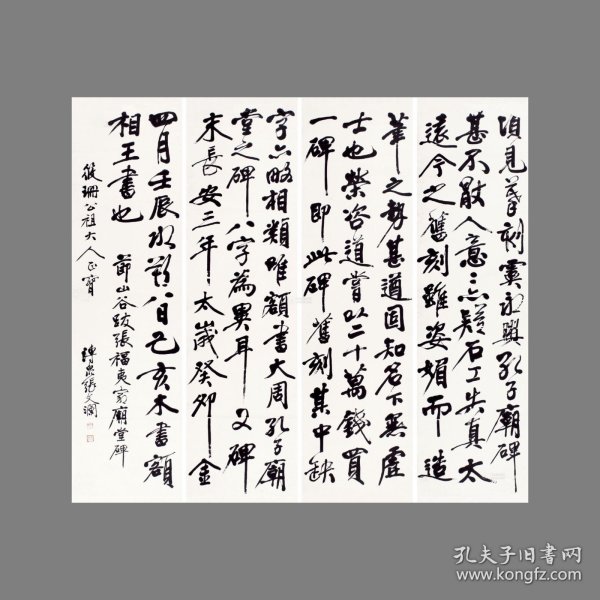 頃見摹刻虞永興孔子廟碑
甚不猒人意意亦疑石工失真太
遠今之舊刻雖姿媚而造
筆之勢甚遒固知名下無虛
士也榮咨道嘗以二十萬錢買
一碑即此碑舊刻其中缺
字亦略相類唯額書大周孔子廟
堂之碑八字為異耳又碑
末長安三年太歲癸卯金
四月壬辰水朔八日己亥木書額
相王書也
節山谷跋張福夷家廟堂碑
筱珊公祖大人正
張文瀾
孔夫子旧书网
www.kongfz.com